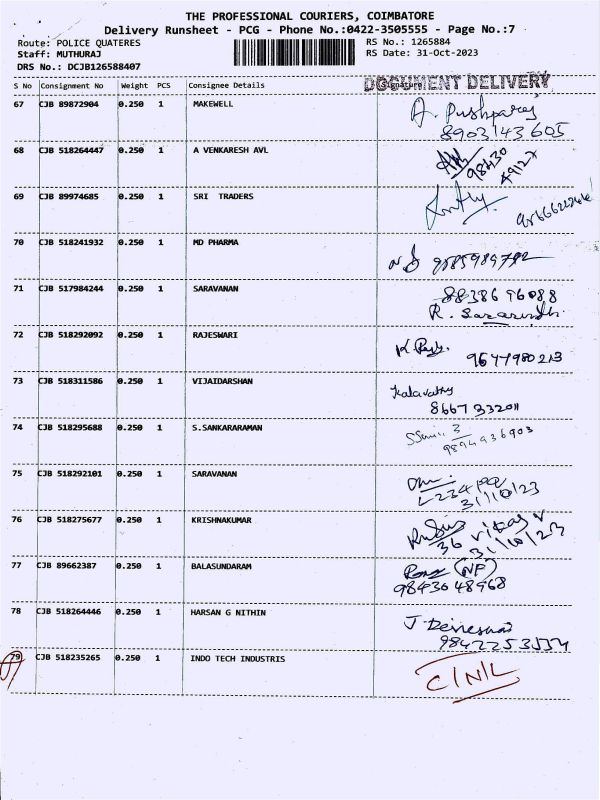 THE PROFESSIONAL COURIERS, COIMBATORE
Delivery Runsheet - PCG - Phone No.:0422-3505555 - Page No.:7
Route: POLICE QUATERES
RS No.: 1265884
Staff: MUTHURAJ
RS Date: 31-Oct-2023
DRS No.: DCJB126588407
DOCUMENT DELIVERY
S No Consignment No Weight PCS Consignee Details
67 CJB 89872904 0.250 1 MAKEWELL
A. Pushparaj
8903143605
68 CJB 518264447 0.250 1 A VENKARESH AVL
98430
49127
69 CJB 89974685 0.250 1 SRI TRADERS
70 CJB 518241932 0.250 1 MD PHARMA
9585989792
71 CJB 517984244 0.250 1 SARAVANAN
88386 96088
R.
72 CJB 518292092 0.250 1 RAJESWARI
9677980213
73 CJB 518311586 0.250 1 VIJAIDARSHAN
Kalavathy
8667332011
74 CJB 518295688 0.250 1 S.SANKARARAMAN
9894936903
75 CJB 518292101 0.250 1 SARAVANAN
31/10/23
76 CJB 518275677 0.250 1 KRISHNAKUMAR
36
31/10/23
77 CJB 89662387 0.250 1 BALASUNDARAM
(NP)
9843048968
78 CJB 518264446 0.250 1 HARSAN G NITHIN
J
79 CJB 518235265 0.250 1 INDO TECH INDUSTRIS
C/N/L